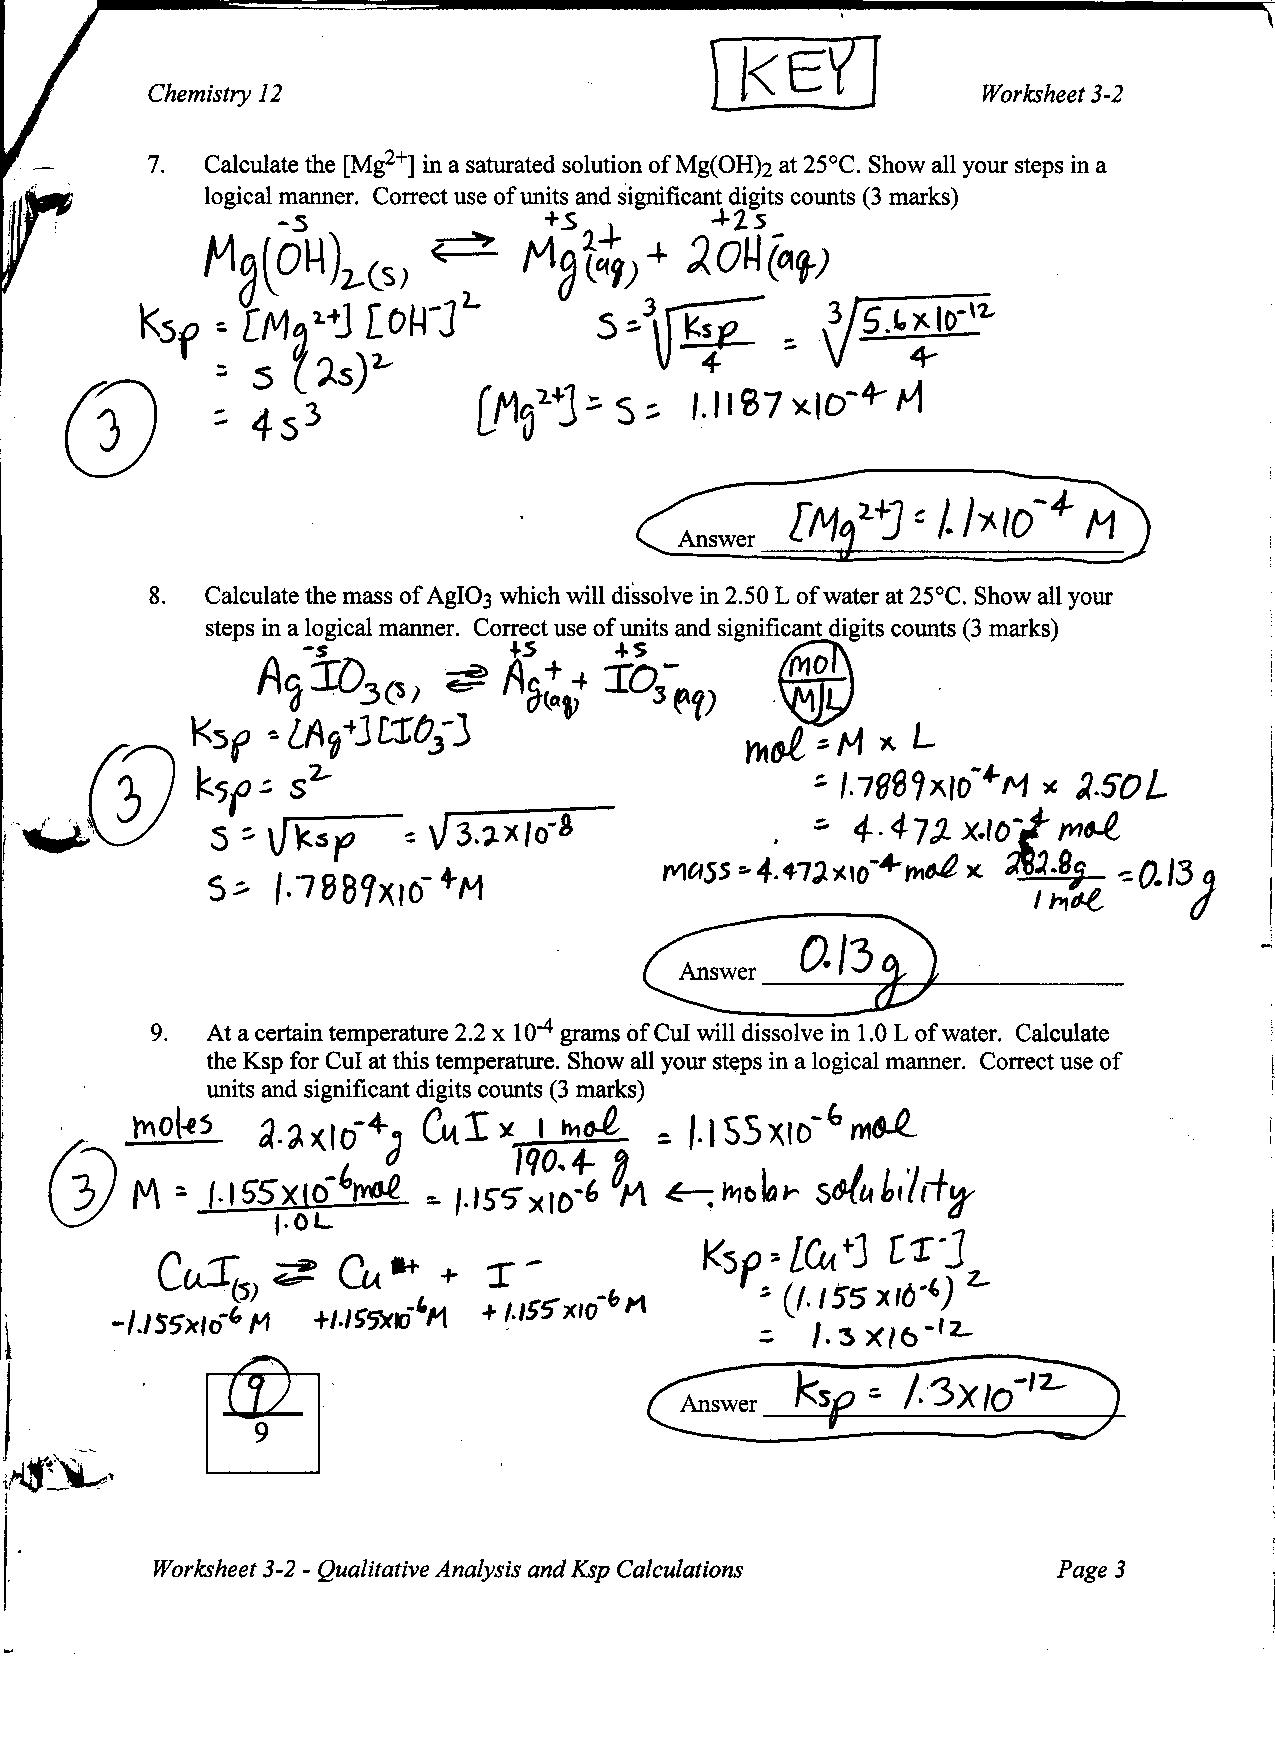 KEY
Chemistry 12 Worksheet 3-2
7. Calculate the [Mg2+] in a saturated solution of Mg(OH)2 at 25°C. Show all your steps in a
logical manner. Correct use of units and significant digits counts (3 marks)
-s +s +2s
Mg(OH)2(s) ⇌ Mg2+(aq) + 2OH-(aq)
Ksp = [Mg2+] [OH-]2 s = 3√Ksp/4 = 3√5.6x10-12/4
= s (2s)2
3 = 4s3 [Mg2+] = s = 1.1187 x10-4 M
Answer [Mg2+] = 1.1x10-4 M
8. Calculate the mass of AgIO3 which will dissolve in 2.50 L of water at 25°C. Show all your
steps in a logical manner. Correct use of units and significant digits counts (3 marks)
-s +s +s
AgIO3(s) ⇌ Ag+(aq) + IO3-(aq) mol
M|L
Ksp = [Ag+][IO3-] mol = M x L
3 Ksp = s2 = 1.7889x10-4 M x 2.50 L
s = √Ksp = √3.2x10-8 = 4.472 x10-4 mol
s = 1.7889x10-4 M mass = 4.472x10-4 mol x 282.8g/1 mol = 0.13 g
Answer 0.13 g
9. At a certain temperature 2.2 x 10-4 grams of CuI will dissolve in 1.0 L of water. Calculate
the Ksp for CuI at this temperature. Show all your steps in a logical manner. Correct use of
units and significant digits counts (3 marks)
moles 2.2x10-4 g CuI x 1 mol/190.4 g = 1.155x10-6 mol
3 M = 1.155x10-6 mol/1.0L = 1.155x10-6 M ← molar solubility
CuI(s) ⇌ Cu+ + I- Ksp = [Cu+] [I-]
-1.155x10-6 M +1.155x10-6 M +1.155x10-6 M = (1.155 x10-6)2
= 1.3 x10-12
9
9
Answer Ksp = 1.3x10-12
Worksheet 3-2 - Qualitative Analysis and Ksp Calculations Page 3